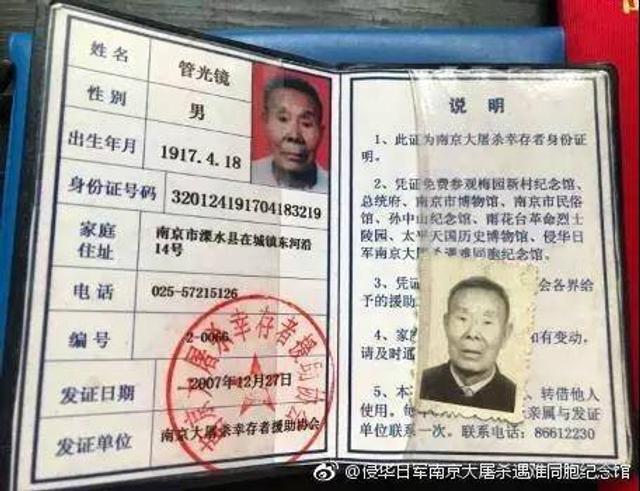 姓名 管光镜
性别 男
出生年月 1917.4.18
身份证号码 320124191704183219
家庭住址 南京市溧水县在城镇东河沿
14号
电话 025-57215126
编号 2-0066
发证日期 2007年12月27日
发证单位 南京大屠杀幸存者援助协会
南京大屠杀幸存者援助协会
说明
1、此证为南京大屠杀幸存者身份证
明。
2、凭证免费参观梅园新村纪念馆、
总统府、南京市博物馆、南京市民俗
馆、孙中山纪念馆、雨花台革命烈士
陵园、太平天国历史博物馆、侵华日
军南京大屠杀遇难同胞纪念馆。
3、凭证 会各界给
予的援助
4、家 如有变动，
请及时通
5、本 、转借他人
使用。每 亲属与发证
单位联系一次。联系电话：86612230
@侵华日军南京大屠杀遇难同胞纪念馆